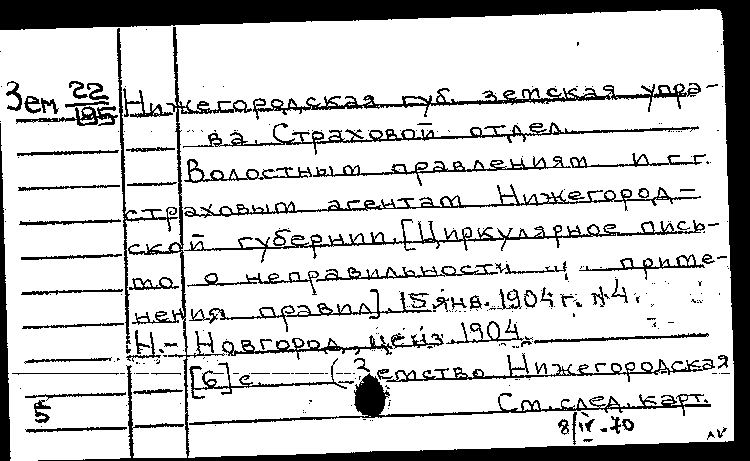 Зем 22/195 Нижегородская губ. земская упра-
ва. Страховой отдел.
Волостным правлениям и г.г.
страховым агентам Нижегород-
ской губернии. [Циркулярное пись-
мо о неправильности приме-
нения правил]. 15 янв. 1904 г. №4.
Н.-Новгород, ценз. 1904.
[6] с. (Земство Нижегородская
5 См. след. карт.
8/IV-70